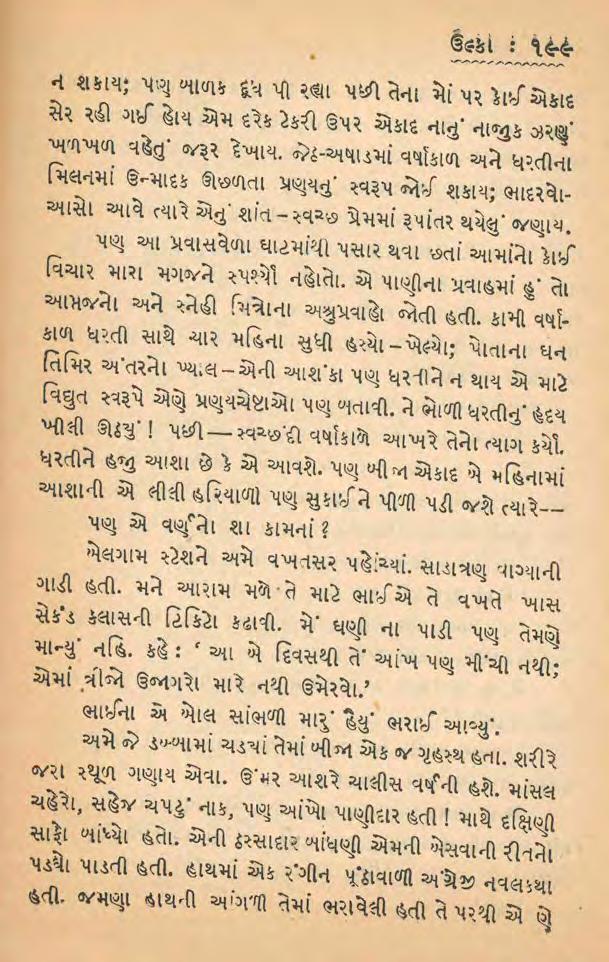 ઉલ્કા : ૧૯૯
ન શકાય; પણ બાળક દૂધ પી રહ્યા પછી તેના મોં પર કોઈ એકાદ
સેર રહી ગઈ હોય એમ દરેક ટેકરી ઉપર એકાદ નાનું નાજુક ઝરણું
ખળખળ વહેતું જરૂર દેખાય. જેઠ-અષાડમાં વર્ષાકાળ અને ધરતીના
મિલનમાં ઉન્માદક ઊછળતા પ્રણયનું સ્વરૂપ જોઈ શકાય; ભાદરવો-
આસો આવે ત્યારે એનું શાંત – સ્વચ્છ પ્રેમમાં રૂપાંતર થયેલું જણાય.
પણ આ પ્રવાસવેળા ઘાટમાંથી પસાર થવા છતાં આમાંનો કોઈ
વિચાર મારા મગજને સ્પર્શ્યો નહોતો. એ પાણીના પ્રવાહમાં હું તો
આપ્તજનો અને સ્નેહી મિત્રોના અશ્રુપ્રવાહો જોતી હતી. કામી વર્ષા-
કાળ ધરતી સાથે ચાર મહિના સુધી હસ્યો – ખેલ્યો; પોતાના ઘન
તિમિર અંતરનો ખ્યાલ – એની આશંકા પણ ધરતીને ન થાય એ માટે
વિદ્યુત સ્વરૂપે એણે પ્રણયચેષ્ટાઓ પણ બતાવી. ને ભોળી ધરતીનું હૃદય
ખીલી ઊઠયું ! પછી — સ્વચ્છંદી વર્ષાકાળે આખરે તેનો ત્યાગ કર્યો.
ધરતીને હજી આશા છે કે એ આવશે. પણ બીજા એકાદ બે મહિનામાં
આશાની એ લીલી હરિયાળી પણ સુકાઈને પીળી પડી જશે ત્યારે--
પણ એ વર્ણનો શા કામનાં ?
બેલગામ સ્ટેશને અમે વખતસર પહોંચ્યાં. સાડાત્રણ વાગ્યાની
ગાડી હતી. મને આરામ મળે તે માટે ભાઈએ તે વખતે ખાસ
સેકંડ કલાસની ટિકિટો કઢાવી. મેં ઘણી ના પાડી પણ તેમણે
માન્યું નહિ. કહે : ‘ આ બે દિવસથી તેં આંખ પણ મીંચી નથી;
એમાં ત્રીજો ઉજાગરો મારે નથી ઉમેરવો.’
ભાઈના એ બોલ સાંભળી મારું હૈયું ભરાઈ આવ્યું.
અમે જે ડબ્બામાં ચડયાં તેમાં બીજા એક જ ગૃહસ્થ હતા. શરીરે
જરા સ્થૂળ ગણાય એવા. ઉંમર આશરે ચાલીસ વર્ષની હશે. માંસલ
ચહેરો, સહેજ ચપટું નાક, પણ આંખો પાણીદાર હતી ! માથે દક્ષિણી
સાફો બાંધ્યો હતો. એની ઠસ્સાદાર બાંધણી એમની બેસવાની રીતનો
પડઘો પાડતી હતી. હાથમાં એક રંગીન પૂંઠાવાળી અંગ્રેજી નવલકથા
હતી. જમણા હાથની આંગળી તેમાં ભરાવેલી હતી તે પરથી એ ણે